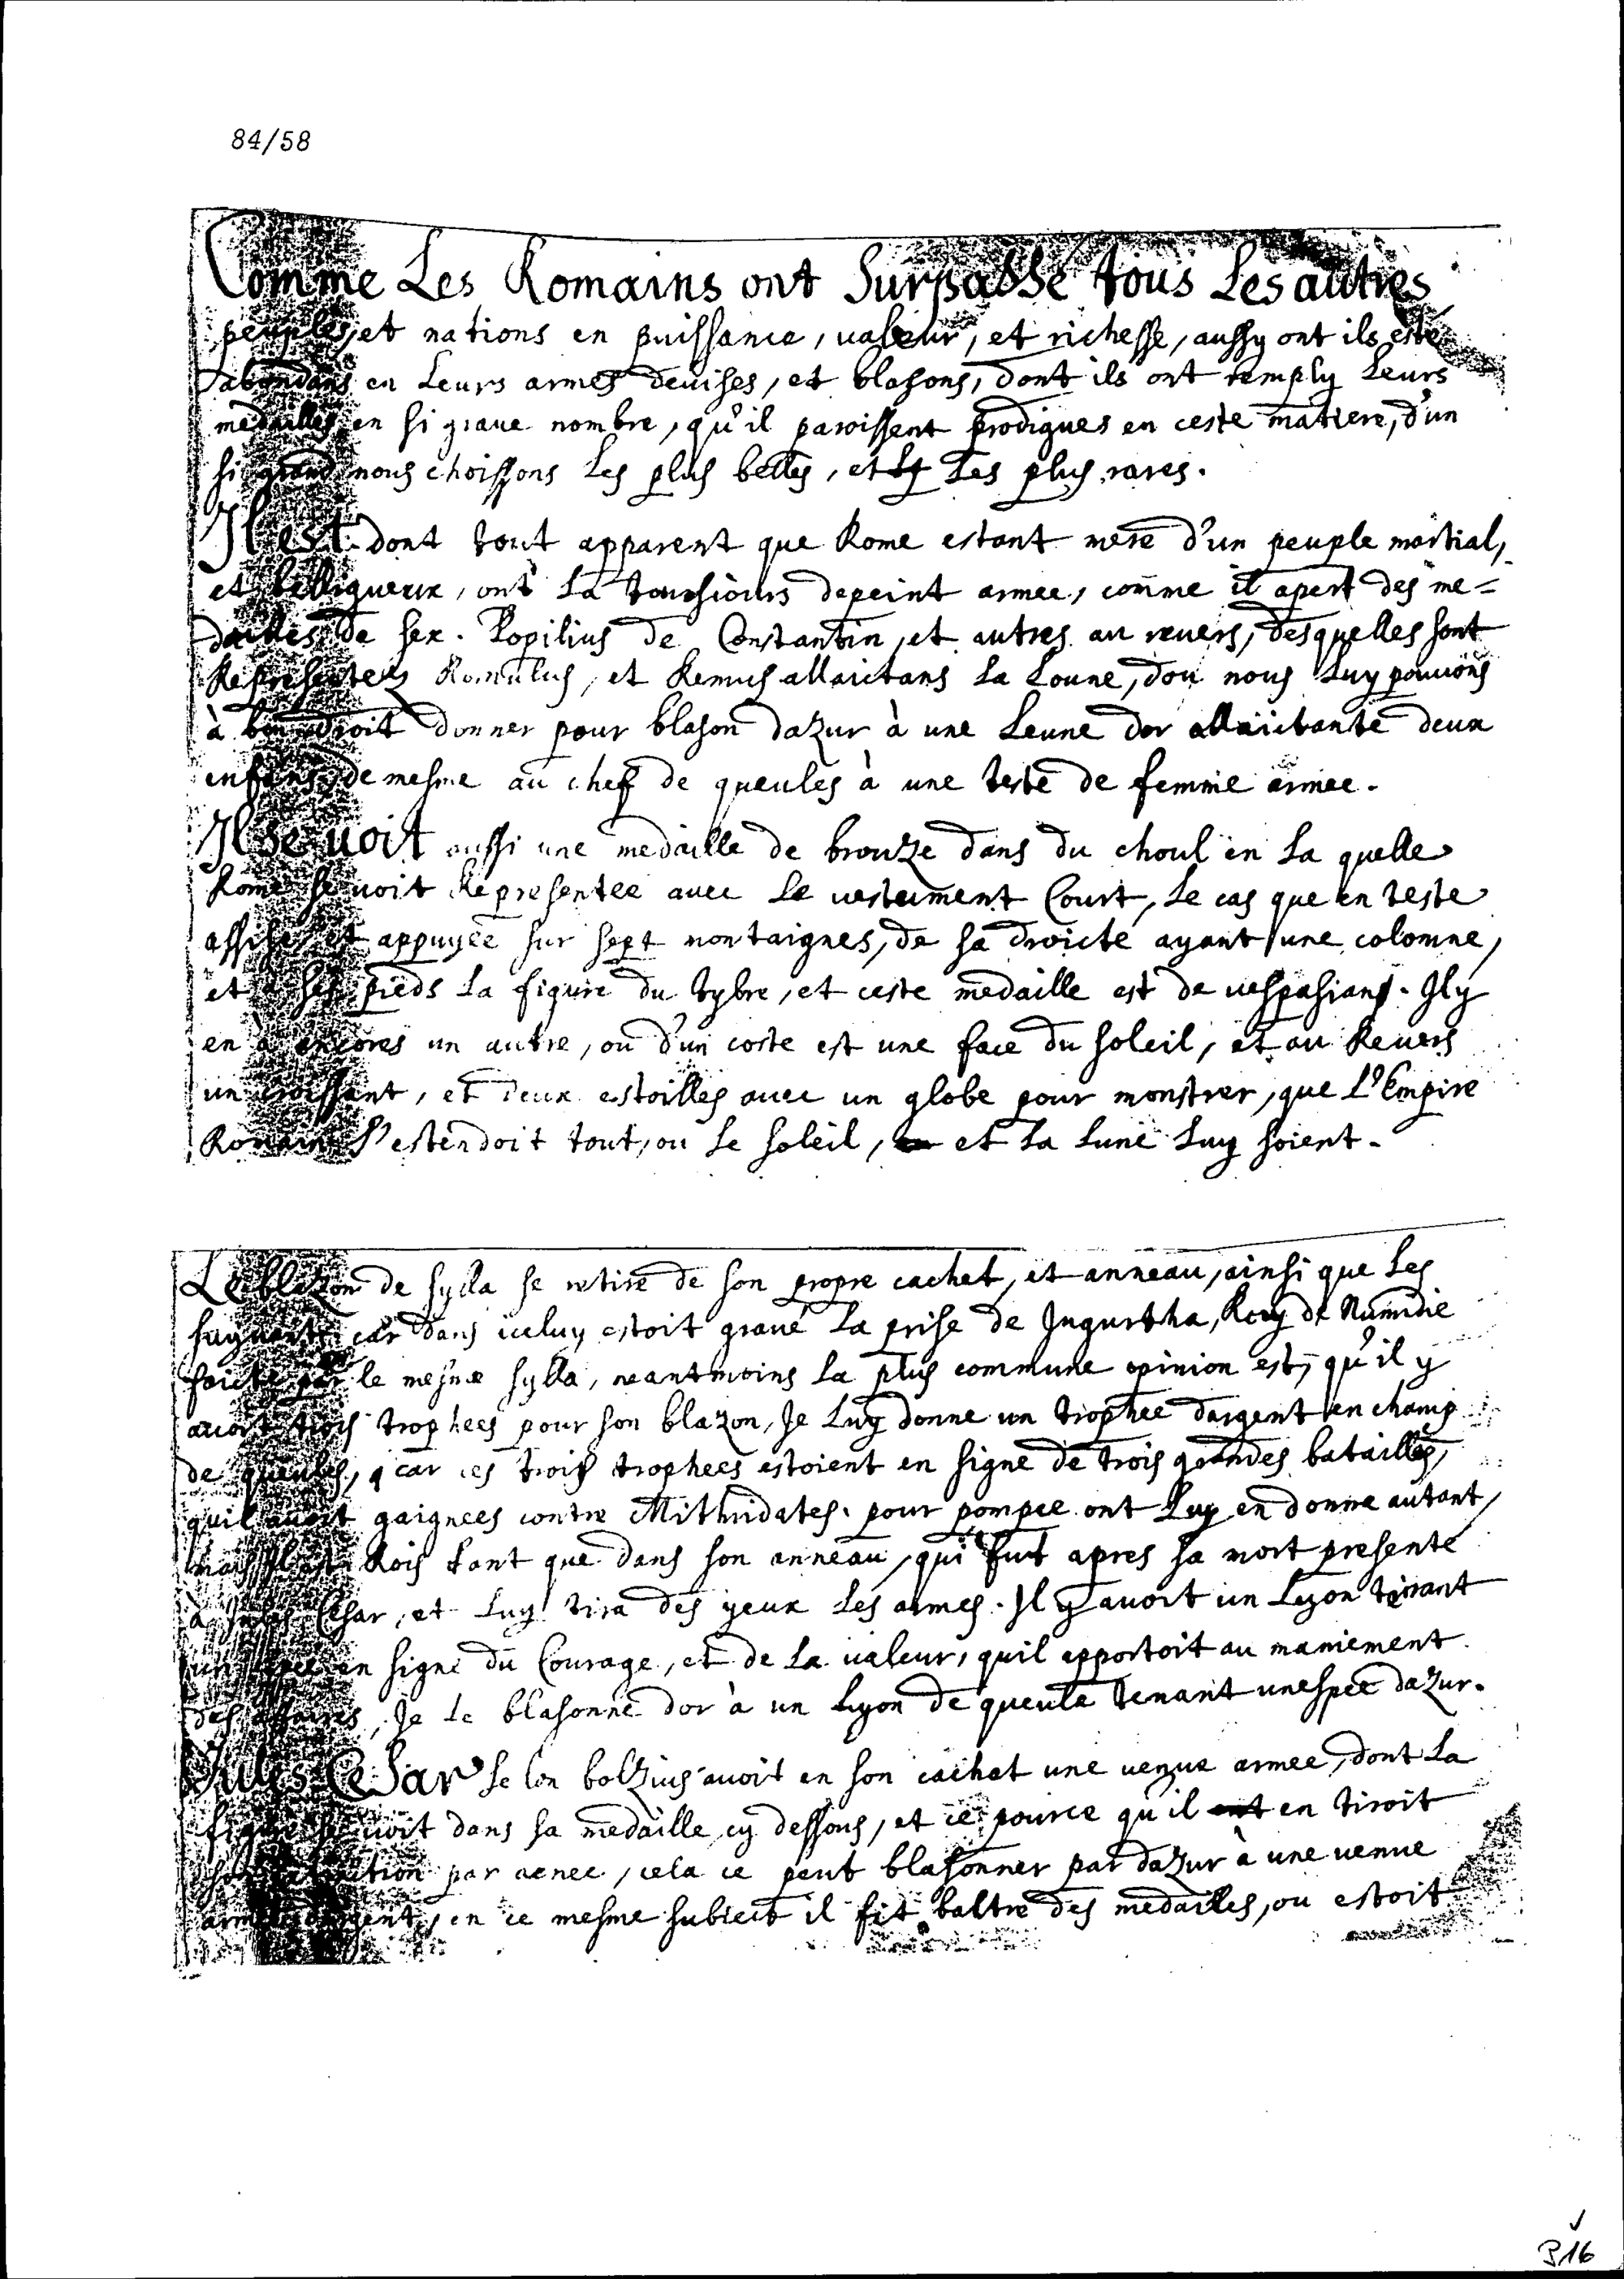 84/58
Comme Les Romains ont Surpassé tous Les autres
peuples, et nations en puissance, valeur, et richesse, aussy ont ils esté
abondans en Leurs armes devises, et blasons, dont ils ont remply Leurs
medailles en si grave nombre, qu'il paroissent prodigues en ceste matiere, d'un
si grand nous choissons Les plus belles, et Les plus rares.
Il est dont tout apparent que Rome estant mere d'un peuple martial,
et belliqueux, ont La tousiours depeint armee, comme il apert des me=
dailles de sex. Popilius de Constantin, et autres au revers, desquelles sont
Representez Romulus, et Remus allaictans La Louve, dou nous Luy pouvons
à bon droit donner pour blason dazur à une Leuve dor allaictante deux
enfans, de mesme au chef de gueules à une teste de femme armee.
Il se voit aussi une medaille de bronze dans du choul en La quelle
Rome se voit Representee avec Le vestement Court, Le cas que en teste
assise, et appuyée sur sept montaignes, de sa droicte ayant une colomne,
et à ses pieds La figure du tybre, et ceste medaille est de vespasian. Il y
en à encores un autre, ou d'un coste est une face du soleil, et au Revers
un croissant, et deux estoilles avec un globe pour monstrer, que L'Empire
Romain s'estendoit tout, ou Le soleil, et La Lune Luy soient.
Le blazon de sylla se retire de son propre cachet, et anneau, ainsi que Les
suyvants car dans iceluy estoit gravé La prise de Jugurtha, Roy de Numidie
faicte par le mesme sylla, neantmoins La plus commune opinion est, qu'il y
avoit trois trophees pour son blazon, Je Luy donne un trophee dargent en champ
de gueules, car ces trois trophees estoient en signe de trois grandes batailles,
quil avoit gaignees contre Mithridates. pour pompee ont Luy en donne autant,
mais Rois tant que dans son anneau, qui fut apres sa mort presenté
à Jules Cesar, et Luy tira des yeux Les armes. Il y avoit un Lyon tenant
une espee en signe du Courage, et de La valeur, quil apportoit au maniement
des affaires, Je Le blasonne dor à un Lyon de gueule tenant unespee dazur.
Jules Cesar selon bolzius avoit en son cachet une venue armee, dont La
figure se voit dans sa medaille cy dessous, et ce pource qu'il en tiroit
son par aenee, cela ce peut blasonner par dazur à une venue
armee dargent, en ce mesme subiect il fit battre des medailles, ou estoit
316